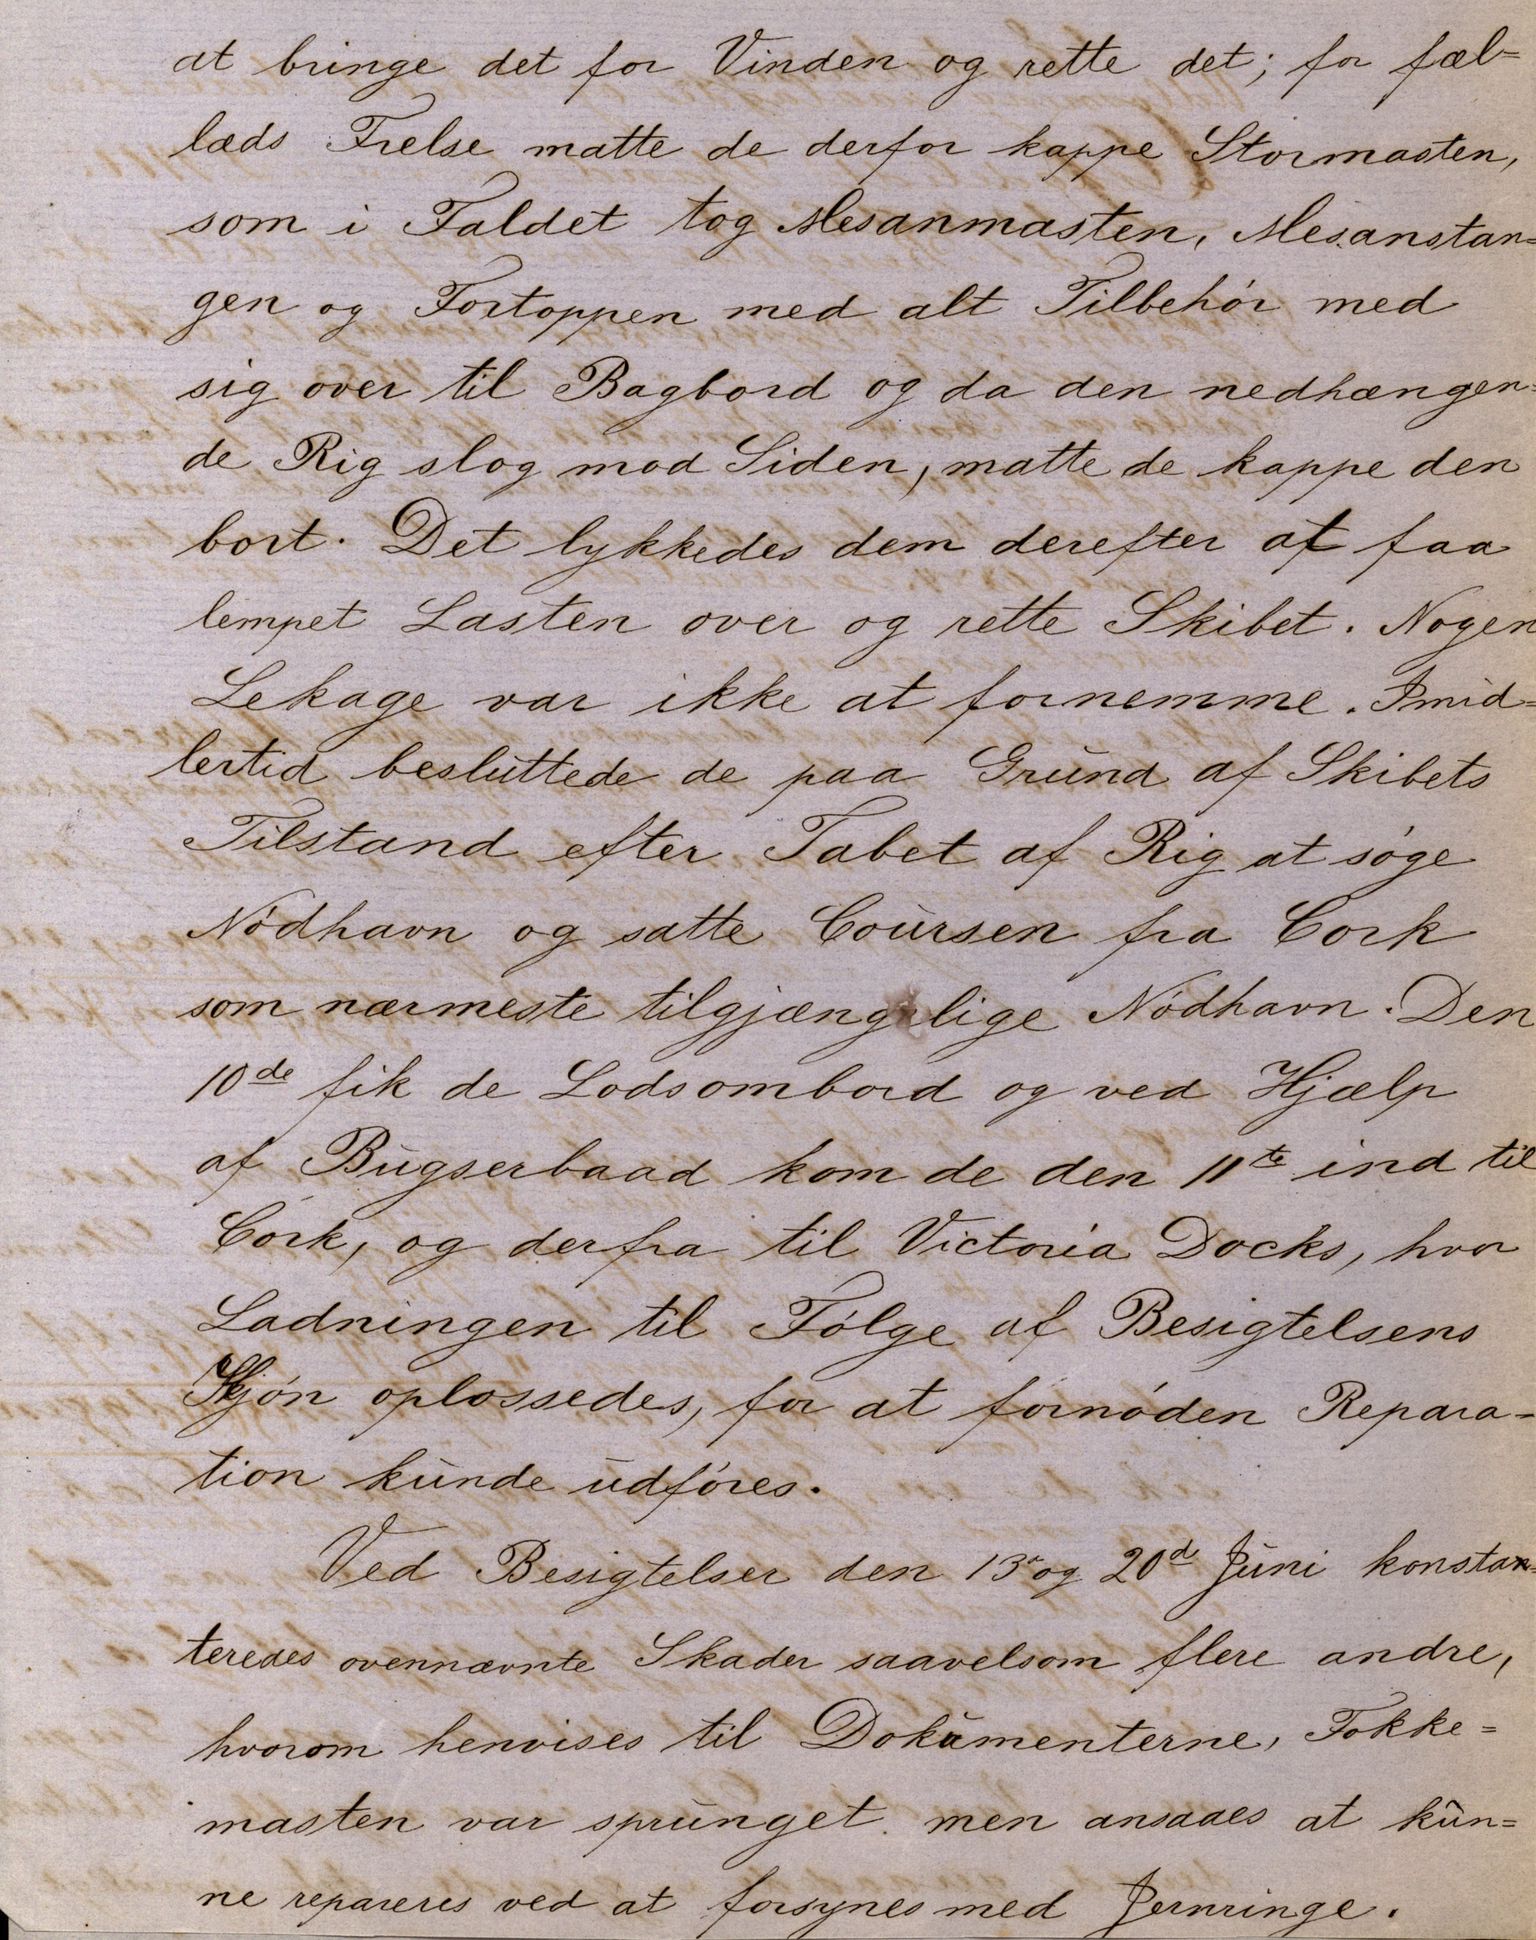 at bringe det for Vinden og rette det; for fæl=
læds Frelse matte de derfor kappe Stormasten,
som i Faldet tog Mesanmasten, Mesanstan=
gen og Fortoppen med alt Tilbehör med
sig over til Bagbord og da den nedhængen=
de Rig slog mod Siden, matte de kappe den
bort. Det lykkedes dem derefter at faa
lempet Lasten over og rette Skibet. Nogen
Lekage var ikke at fornemme. Imid=
lertid besluttede de paa Grund af Skibets
Tilstand efter Tabet af Rig at söge
Nödhavn og satte Coursen fra Cork
som nærmeste tilgjængelige Nödhavn. Den
10de fik de Lods ombord og ved Hjælp
af Bugserbaad kom de den 11te ind til
Cork, og derfra til Victoria Docks, hvor
Ladningen til Fölge af Besigtelsens
Skjön oplossedes, for at fornöden Repara=
tion kunde udföres.
Ved Besigtelser den 13de og 20de Juni konstan=
teredes ovennævnte Skader saavelsom flere andre,
hvorom henvises til Dokumenterne, Fokke=
masten var sprunget men ansaaes at kun=
ne repareres ved at forsynes med Jernringe.